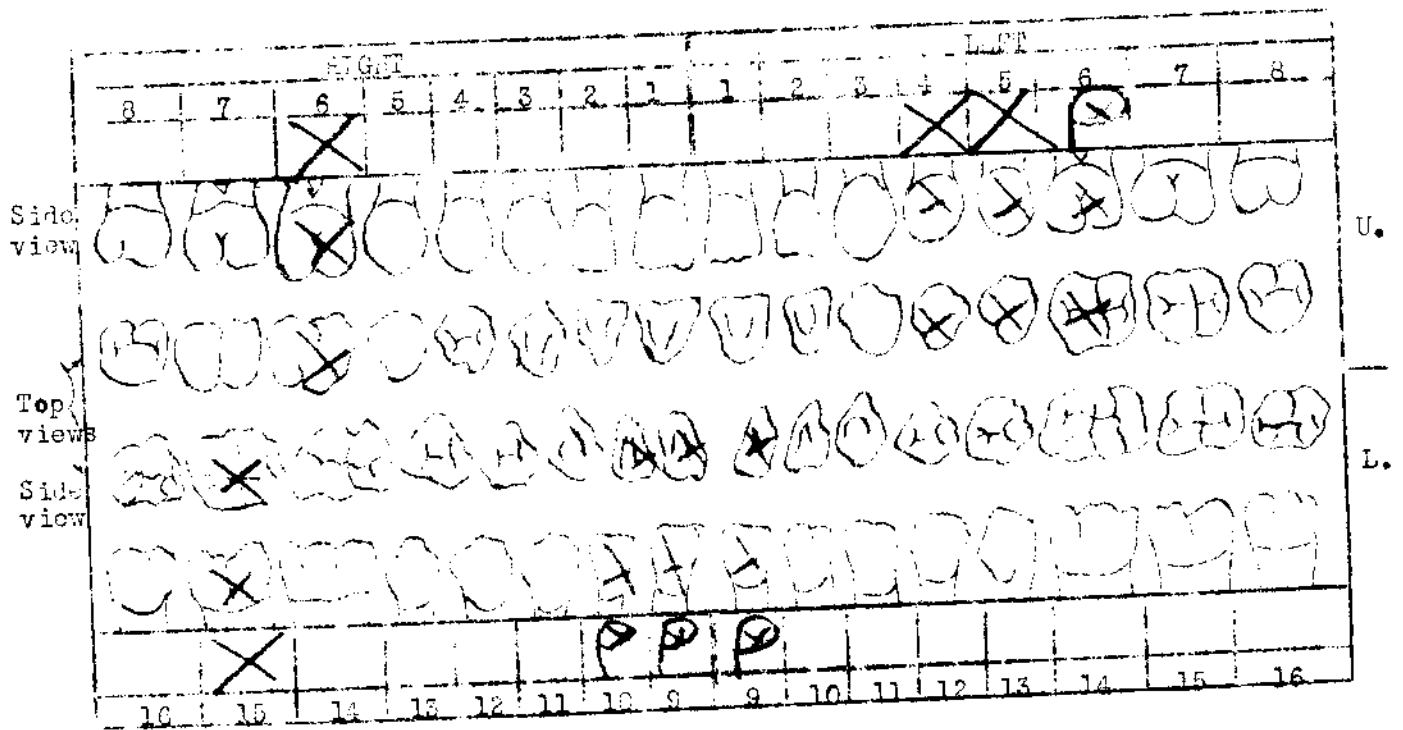 RIGHT LEFT
8 7 6 5 4 3 2 1 1 2 3 4 5 6 7 8
X X X X
Side
view
U.
Top
views
L.
Side
view
X P P P
16 15 14 13 12 11 10 9 9 10 11 12 13 14 15 16